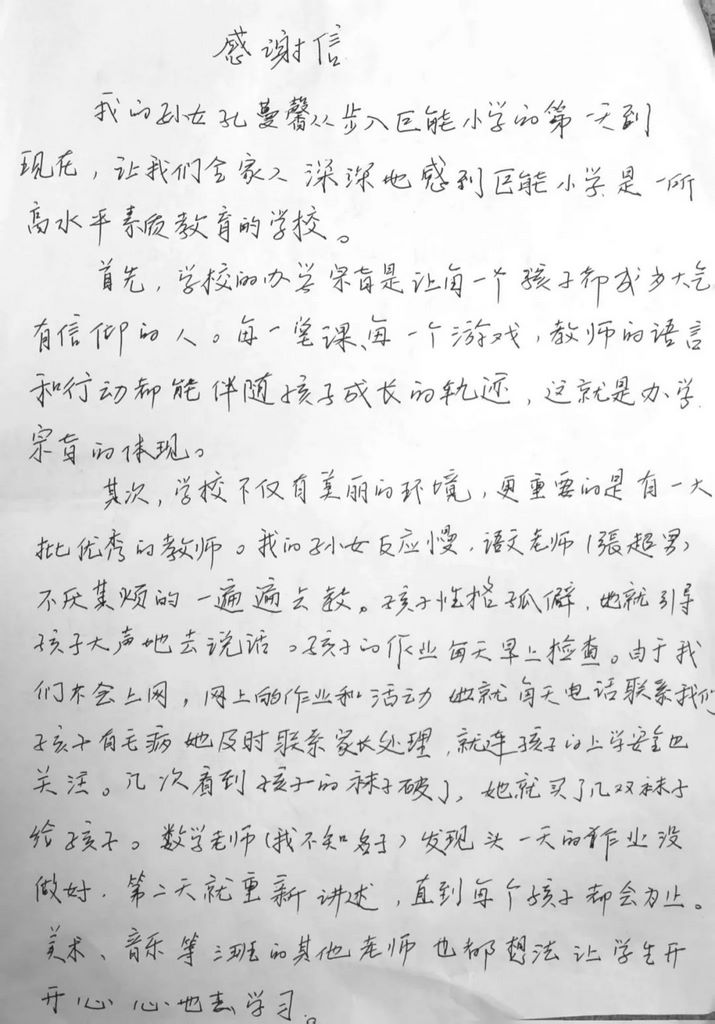 感谢信
我的孙女孔曼馨从步入巨能小学的第一天到
现在，让我们全家人深深地感到巨能小学是一所
高水平素质教育的学校。
首先，学校的办学宗旨是让每一个孩子都成为大气
有信仰的人。每一堂课、每一个游戏，教师的语言
和行动都能伴随孩子成长的轨迹，这就是办学
宗旨的体现。
其次，学校不仅有美丽的环境，更重要的是有一大
批优秀的教师。我的孙女反应慢，语文老师（張超男）
不厌其烦的一遍遍去教。孩子性格孤僻，她就引导
孩子大声地去说话。孩子的作业每天早上检查。由于我
们不会上网，网上的作业和活动她就每天电话联系我们
孩子有毛病她及时联系家长处理，就连孩子的上学安全也
关注。几次看到孩子的袜子破了，她就买了几双袜子
给孩子。数学老师（我不知名子）发现头一天的作业没
做好，第二天就重新讲述，直到每个孩子都会为止。
美术、音乐等三班的其他老师也都想法让学生开
开心心地去学习。